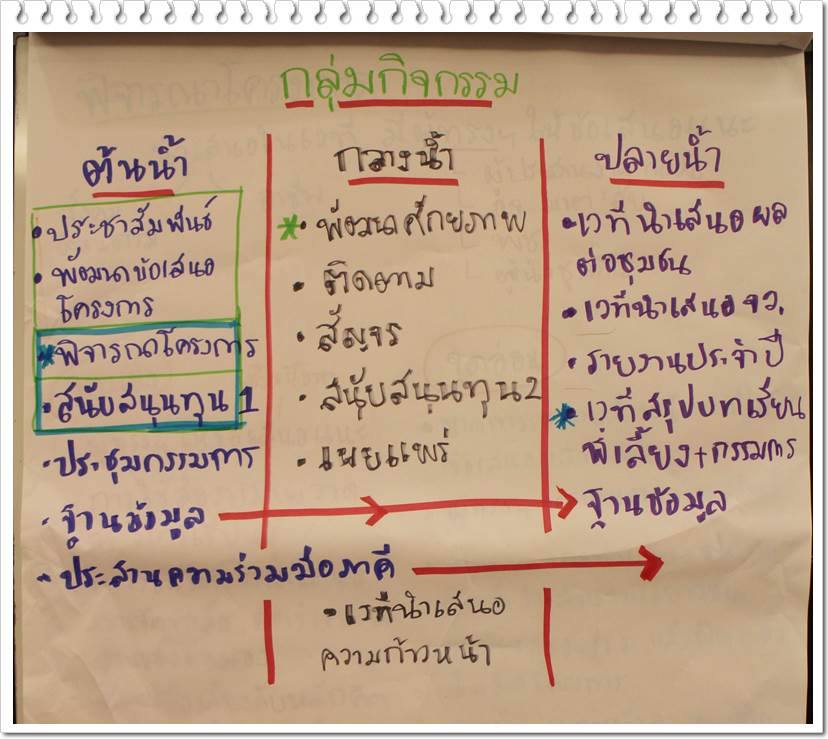 กลุ่มกิจกรรม
ต้นน้ำ
• ประชาสัมพันธ์
• พัฒนาข้อเสนอ
โครงการ
* พิจารณาโครงการ
• สนับสนุนทุน 1
• ประชุมกรรมการ
• ฐานข้อมูล
• ประสานความร่วมมือภาคี
กลางน้ำ
* • พัฒนาศักยภาพ
• ติดตาม
• สัญจร
• สนับสนุนทุน 2
• เผยแพร่
• เวทีนำเสนอ
ความก้าวหน้า
ปลายน้ำ
• เวทีนำเสนอผล
ต่อชุมชน
• เวทีนำเสนอ จว.
• รายงานประจำปี
* เวทีสรุปบทเรียน
พี่เลี้ยง+กรรมการ
ฐานข้อมูล